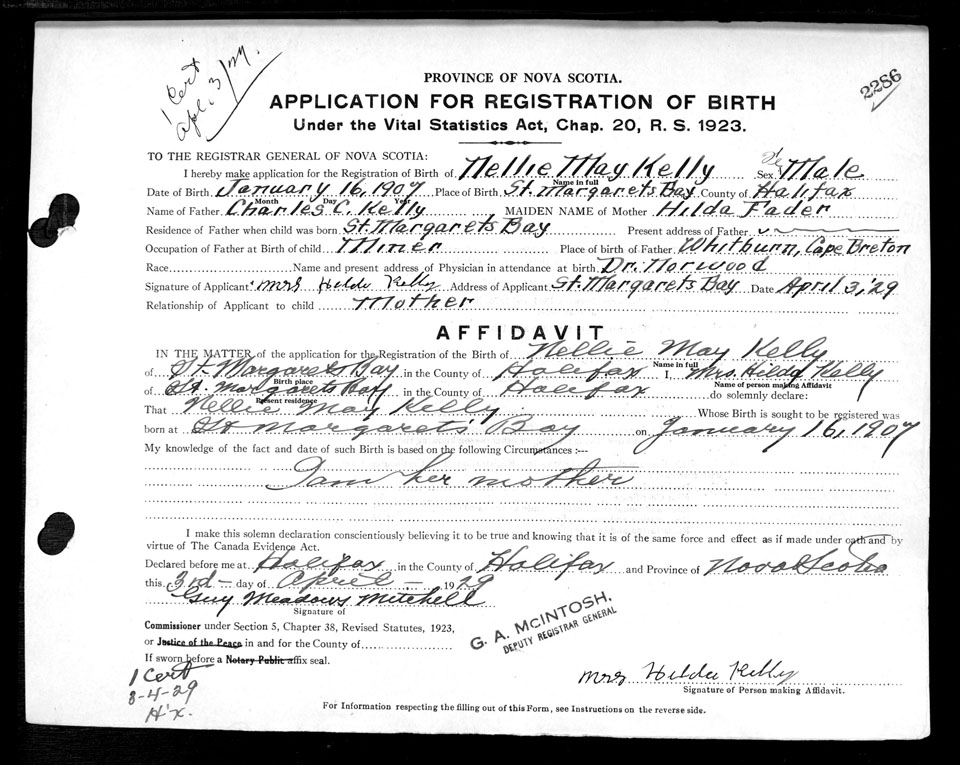 1 Cert
Apl. 3/29.
2286
PROVINCE OF NOVA SCOTIA.
APPLICATION FOR REGISTRATION OF BIRTH
Under the Vital Statistics Act, Chap. 20, R. S. 1923.
TO THE REGISTRAR GENERAL OF NOVA SCOTIA:
I hereby make application for the Registration of Birth of Nellie May Kelly Sex Fe Male
Name in full
Date of Birth January 16, 1907 Place of Birth St. Margarets Bay County of Halifax
Month Day Year
Name of Father Charles C. Kelly MAIDEN NAME of Mother Hilda Fader
Residence of Father when child was born St. Margarets Bay Present address of Father
Occupation of Father at Birth of child Miner Place of birth of Father Whitburn, Cape Breton
Race Name and present address of Physician in attendance at birth Dr. Norwood
Signature of Applicant Mrs Hilda Kelly Address of Applicant St. Margarets Bay Date April 3, 29
Relationship of Applicant to child Mother
AFFIDAVIT
IN THE MATTER of the application for the Registration of the Birth of Nellie May Kelly
Name in full
of St. Margarets Bay in the County of Halifax I, Mrs. Hilda Kelly
Birth place Name of person making Affidavit
of St. Margarets Bay in the County of Halifax do solemnly declare:
Present residence
That Nellie May Kelly Whose Birth is sought to be registered was
born at St Margaret's Bay on January 16, 1907
My knowledge of the fact and date of such Birth is based on the following Circumstances :—
I am her mother
I make this solemn declaration conscientiously believing it to be true and knowing that it is of the same force and effect as if made under oath and by
virtue of The Canada Evidence Act.
Declared before me at Halifax in the County of Halifax and Province of Nova Scotia
this 3rd day of April 1929
Guy Meadows Mitchell
Signature of
Commissioner under Section 5, Chapter 38, Revised Statutes, 1923,
or Justice of the Peace in and for the County of
If sworn before a Notary Public affix seal.
G. A. McINTOSH,
DEPUTY REGISTRAR GENERAL
1 Cert
3-4-29
H'x.
Mrs Hilda Kelly
Signature of Person making Affidavit.
For Information respecting the filling out of this Form, see Instructions on the reverse side.